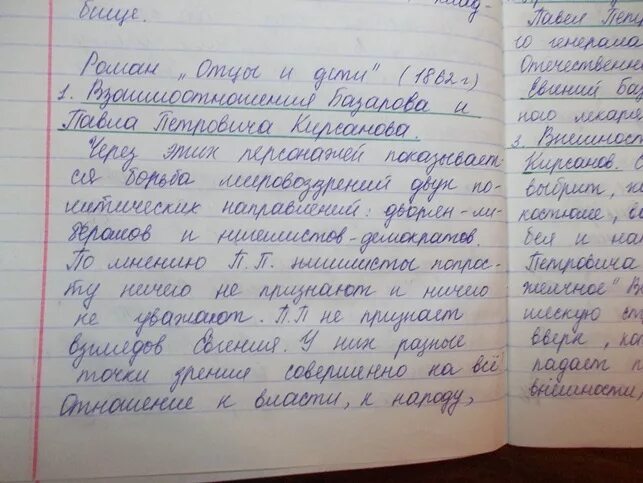 бище.
Роман „Отцы и дети" (1862 г)
1. Взаимоотношения Базарова и
Павла Петровича Кирсанова.
Через этих персонажей показывает
ся борьба мировоззрений двух по-
литических направлений: дворян-ли-
бералов и нигилистов-демократов.
По мнению П.П. нигилисты попрос-
ту ничего не признают и ничего
не уважают. П.П не признает
взглядов Евгения. У них разные
точки зрения совершенно на всё
Отношение к власти, к народу,
Павел Пет
го генерала
Отечественн
Евгений Баз
ного лекаря
3. Внешност
Кирсанов. С
выбрит, н
костюме, в
бея и на
Петровича
желчное" В
ическую ст
вверх, ка
падает п
внешности,